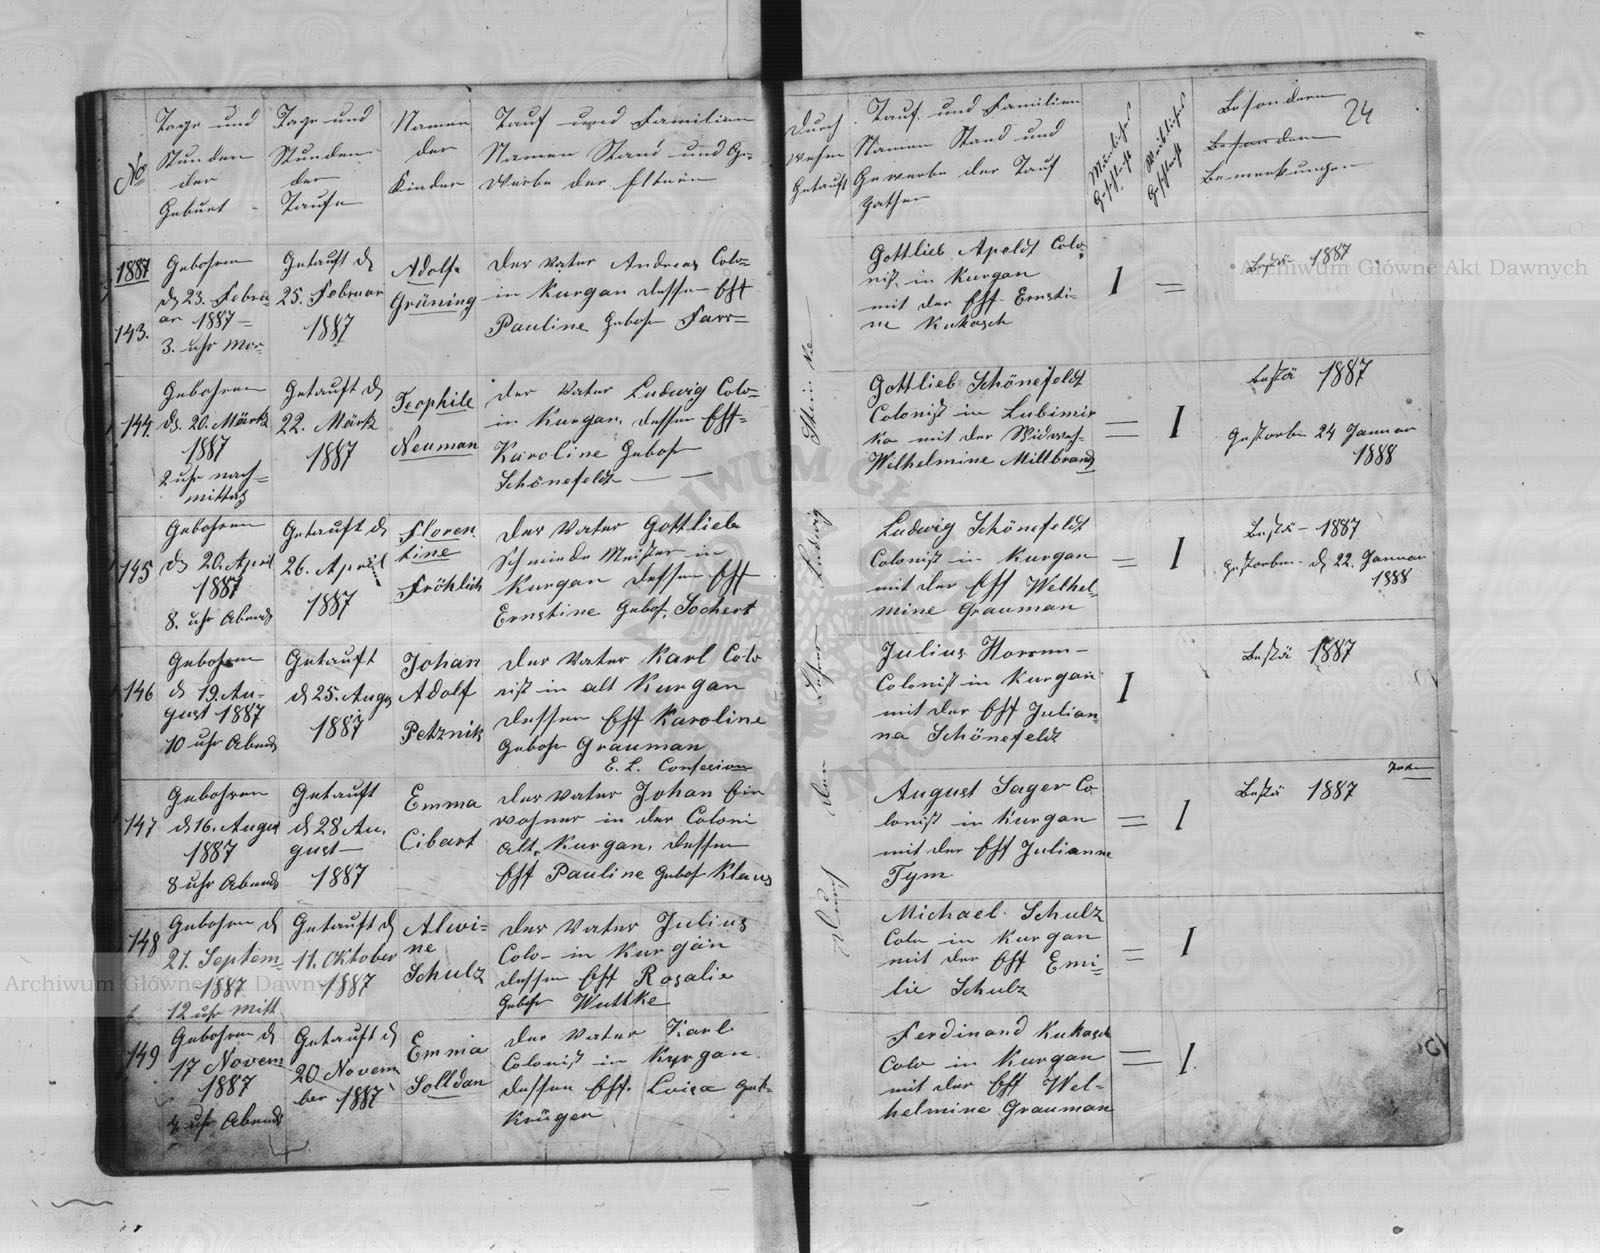 No
Tage und
Stunden
der
Geburt
Tage und
Stunden
der
Taufe
Namen
der
Kinder
Tauf und Familien
Namen Stand und Ge-
werbe der Eltern
Durch
wehm
Getauft
Tauf und Familien
Namen Stand und
Gewerbe der Tauf
Pathen
Männliches
Geschlecht
Weibliches
Geschlecht
Besondere
Bemerkungen
24
1887
143.
Gebohren
d 23. Febru
ar 1887
3. uhr Mor-
Getauft d
25. Februar
1887
Adolf
Grüning
Der Vater Andreas Colo=
in Kurgan dessen Eff
Pauline Geboh Farr=
Gottlieb Apeldt Colo
nist in Kurgan
mit der Eff Ernsti-
ne Kukasch
1 =
Bestä 1887
144.
Gebohren
d. 20. Märtz
1887
2 uhr nach=
mittag
Getauft d
22. Märtz
1887
Teophile
Neuman
Der Vater Ludwig Colo-
in Kurgan, dessen Eff=
Karoline Geboh
Schönefeldt
Gottlieb Schönefeldt
Colonist in Lubimir
ka mit der
Welhelmine Millbrand
= 1
bestä 1887
Gestorben 24 Januar
1888
145
Gebohren
d 20. April
1887
8. uhr Abend
Getauft d
26. April
1887
Floren
tine
Fröhlich
Der Vater Gottlieb
Schmiede Meister in
Kurgan dessen Eff
Ernstine Geboh. Sochert
Ludwig Schönefeldt
Colonist in Kurgan
mit der Eff Welhel-
mine Grauman
= 1
Bestä - 1887
gestorben d 22. Januar
1888
146
Gebohren
d 19. Au-
gust 1887
10 uhr Abend
Getauft
d 25. Augus
1887
Johan
Adolf
Petznik
Der Vater Karl Colo
nist in alt Kurgan
dessen Eff Karoline
Geboh Grauman
E. L. Confesion
Julius
Colonist in Kurgan
mit der Eff Julian-
na Schönefeldt
1
Bestä 1887
147
Gebohren
d 16. August
1887
8 uhr Abend
Getauft
d 28 Au.
gust
1887
Emma
Cibart
Der Vater Johan Ein
wohner in der Coloni
alt. Kurgan. dessen
Eff Pauline Geboh Klaus
August Sager Co
lonist in Kurgan
mit der Eff Julianne
Tym
= 1
Bestä 1887
148
Gebohren d
21. Septem=
1887
12 uhr Mitt
Getauft d
11. Oktober
1887
Alwi-
ne
Schulz
Der Vater Julius
Colo- in Kurgan
dessen Eff Rosalie
Geboh Wuttke
Michael Schulz
Colo in Kurgan
mit der Eff Emi-
lie Schulz
= 1
149
Gebohren d
17 Novem
1887
uhr Abend
Getauft d
20 Novem
ber 1887
Emma
Solldan
Der Vater Karl
Colonist in Kurgan
dessen Eff. Luisa Geb-
Krüger
Ferdinand Kukasch
Colo in Kurgan
mit der Eff Wel-
helmine Grauman
= 1.
Durch den Lehrer Ludwig
Archiwum Główne Akt Dawnych
Archiwum Główne Akt Dawnych